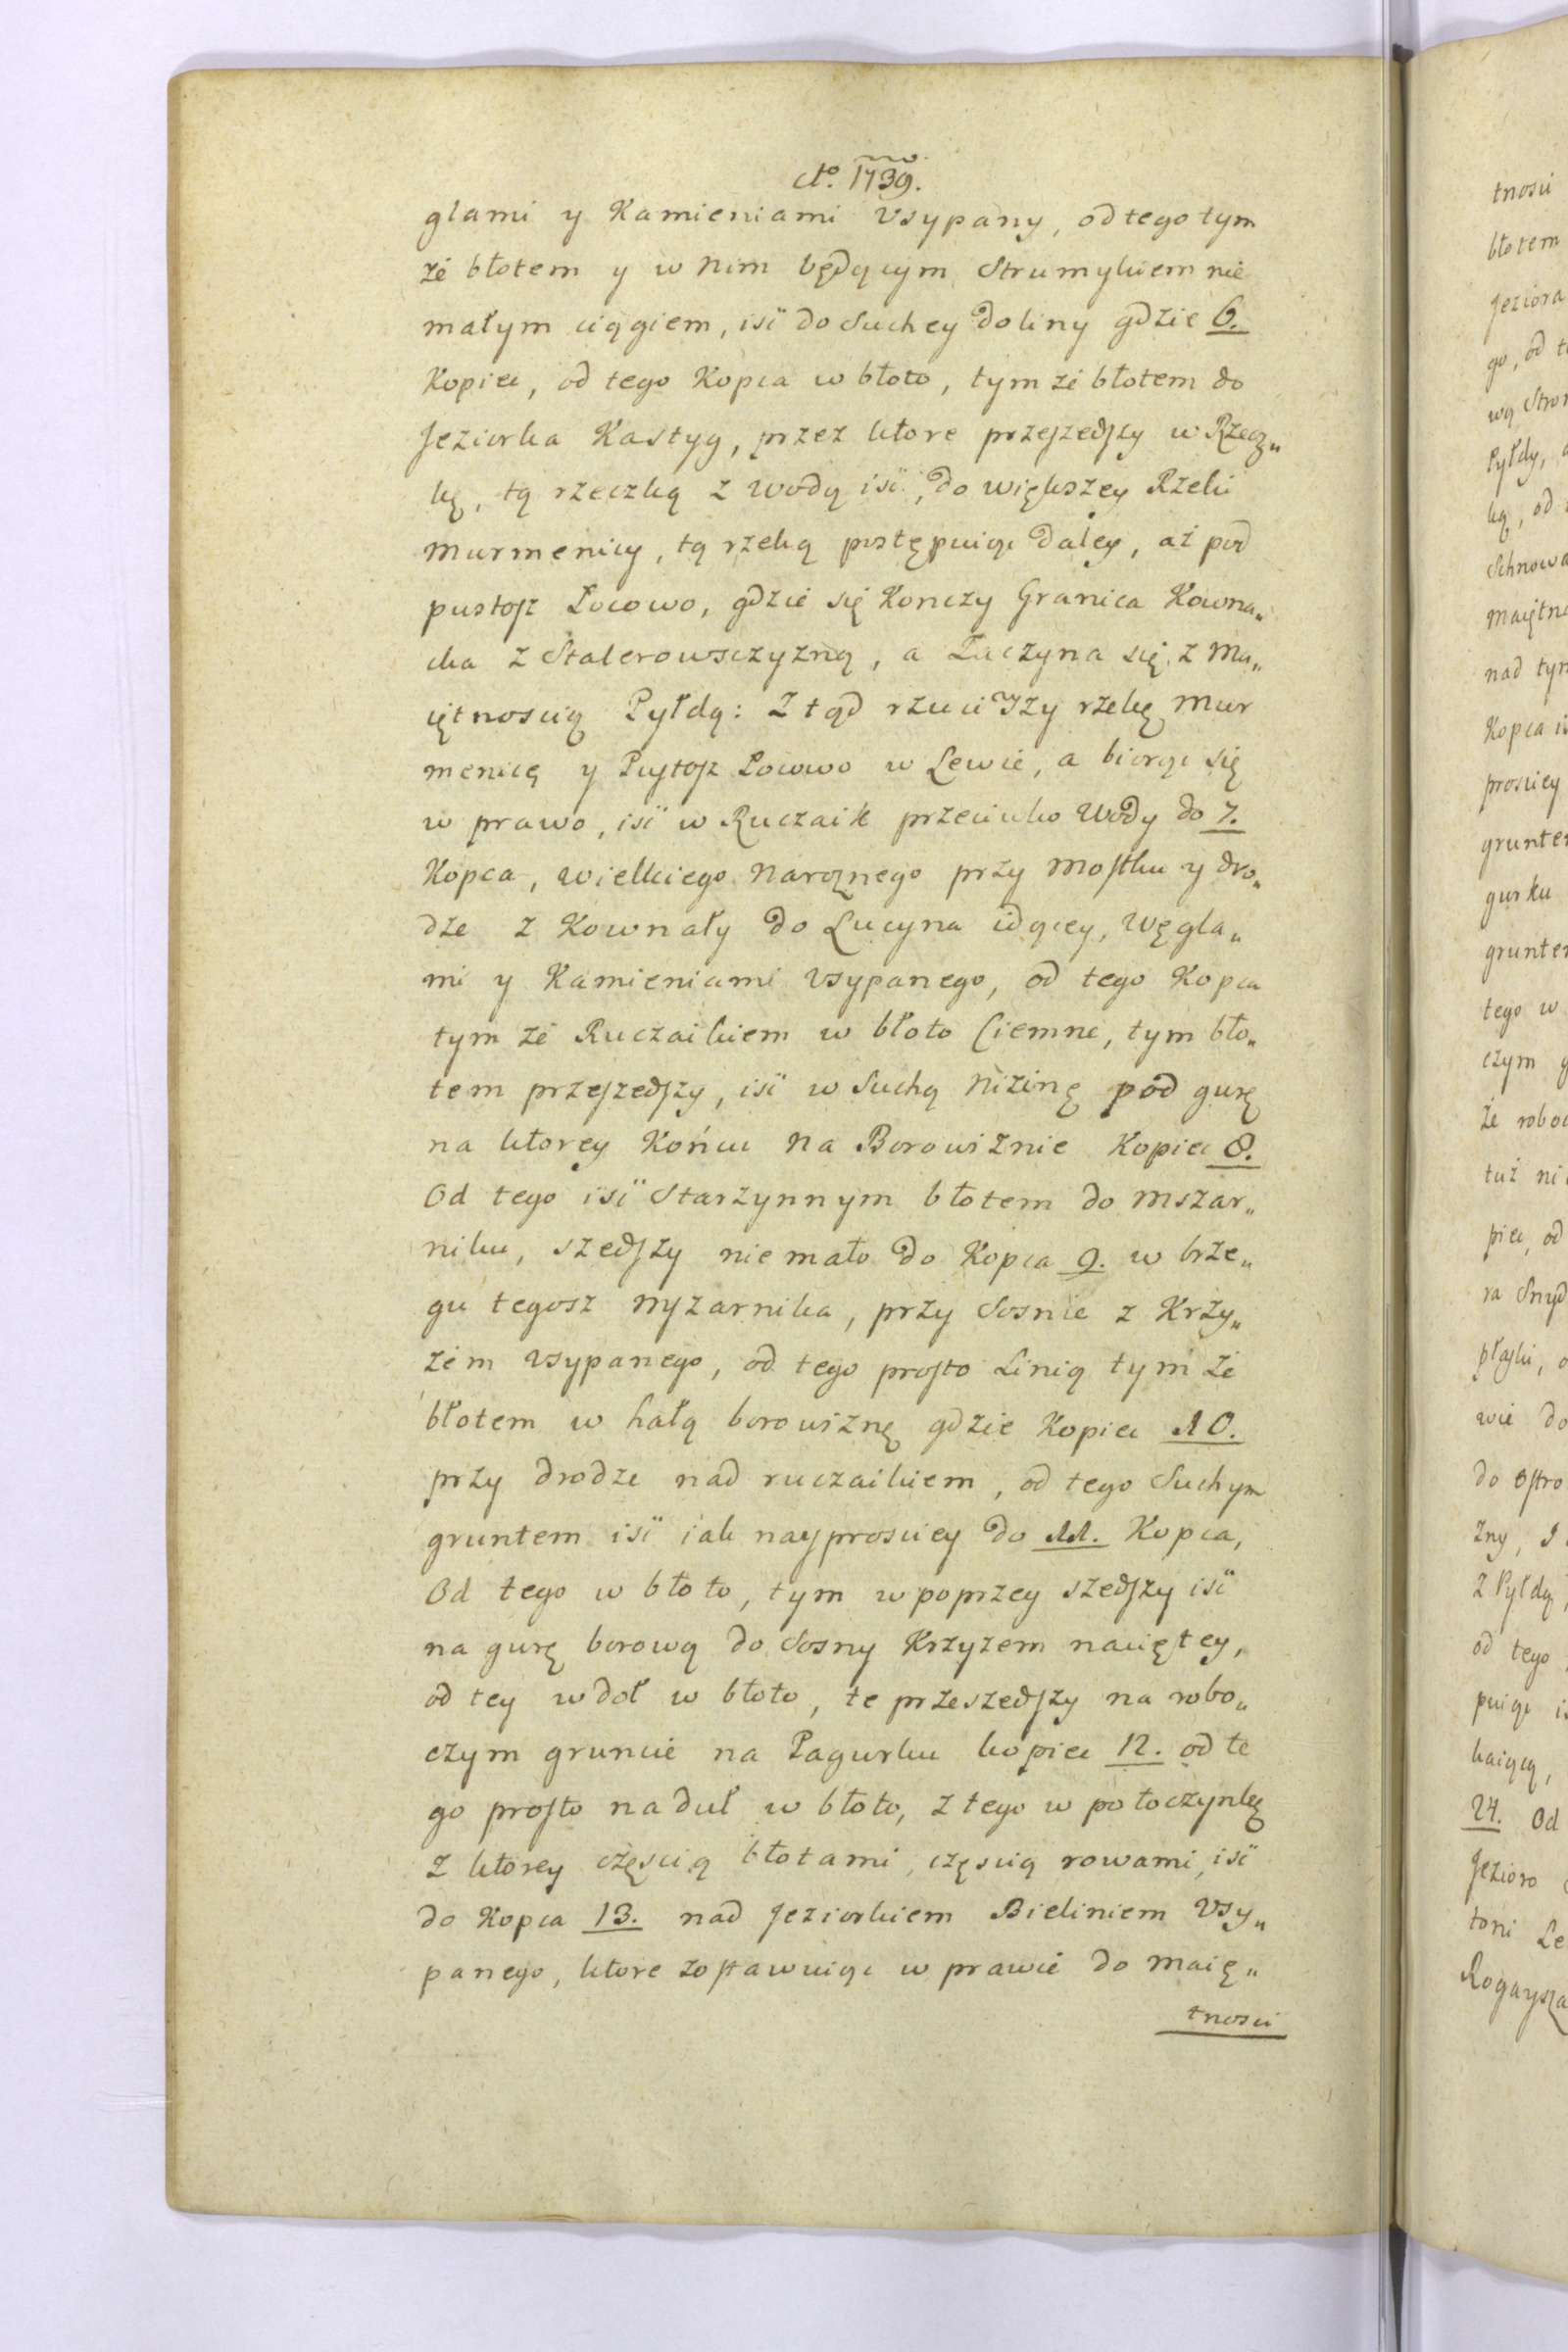 Ao. 1739.
glami y Kamieniami Vsypany, od tego tym
że błotem y w nim będącym Strumykiem nie
małym ciągiem, iść do Suchey doliny gdzie 6.
Kopiec, od tego Kopca w błoto, tym że błotem do
Jeziorka Kastyg, przez ktore przeszedszy w Rzecz„
kę, tą rzeczką z wodą iść, do większey Rzeki
Murmenicy, tą rzeką postępuiąc daley, aż pod
pustosz Locowo, gdzie się Konczy Granica Kowna„
cka z Stalerowsczyzną, a Zaczyna się z Ma„
iętnoscią Pyłdą: Z tąd rzuciwszy rzekę Mur
menicę y Pustosz Locowo w Lewie, a biorąc się
w prawo, iść w Ruczaik przeciwko Wody do 7.
Kopca, wielkiego Naroznego przy Mostku y dro„
dze z Kownaty do Lucyna idącey, Węgla„
mi y Kamieniami Vsypanego, od tego Kopca
tym że Ruczaikiem w błoto Ciemne, tym bło„
tem przeszedszy, iść w Suchą Nizinę pod gurę
na ktorey Końcu Na Borowiznie Kopiec 8.
Od tego iść Starzynnym błotem do Mszar„
niku, szedszy nie mało do Kopca 9. w brze„
gu tegosz Mszarnika, przy Sosnie z Krzy„
żem vsypanego, od tego prosto Linią tym że
błotem w hałą borowiznę gdzie Kopiec 10.
przy drodze nad ruczaikiem, od tego Suchym
gruntem iść iak nayprosciey do 11. Kopca,
Od tego w błoto, tym w poprzey szedszy iść
na gurę borową do Sosny Krzyzem naciętey,
od tey w doł w błoto, te przeszedszy na robo„
czym gruncie na Pagurku kopiec 12. od te
go prosto na duł w błoto, z tego w połoczynkę
z ktorey częscią błotami, częscią rowami, iść
do Kopca 13. nad Jeziorkiem Bieliniem Vsy„
panego, ktore zostawuiąc w prawie do Maię„
tnosci
tnosci
błotem
Jeziora
go, od t
wą Stron
Pyłdy,
kę, od
Schnowa
Maiętno
nad tym
Kopca i
prosciey
grunte
gurku
grunte
tego w
czym g
że robo
tuż ni
piec, od
ra Snyd
płaski,
wie do
do Ostro
zny,
z Pyłdą
od tego
puiąc i
kaiącą,
24. Od
Jezioro
toni Le
Rogaysza